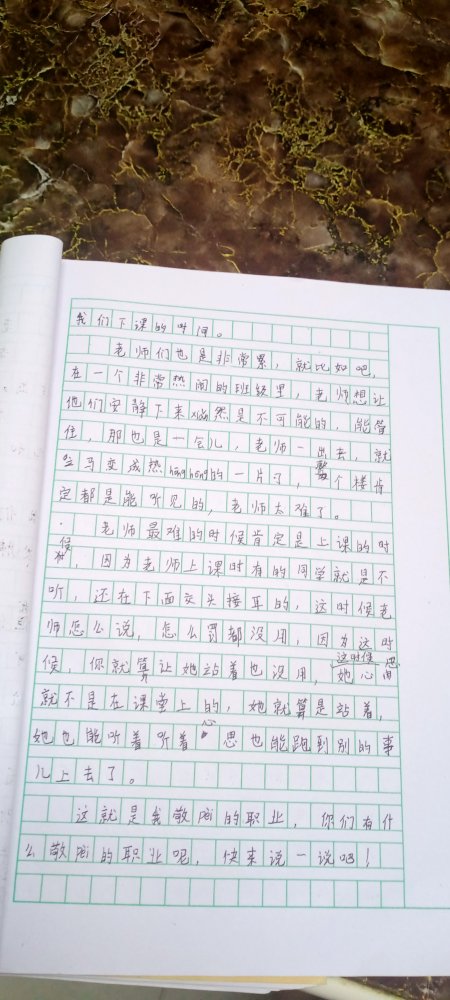 我们下课的时间。
老师们也是非常累，就比如吧，
在一个非常热闹的班级里，老师想让
他们安静下来必然是不可能的，能管
住，那也是一会儿，老师一出去，就
立马变成热hōnghōng的一片了，整个楼肯
定都是能听见的，老师太难了。
老师最难的时候肯定是上课的时
候，因为老师上课时有的同学就是不
听，还在下面交头接耳的，这时候老
师怎么说，怎么罚都没用，因为这时
候，你就算让她站着也没用，这时候她心思
就不是在课堂上的，她就算是站着，
她也能听着听着心思也能跑到别的事
儿上去了。
这就是我敬师的职业，你们有什
么敬师的职业呢，快来说一说吧！